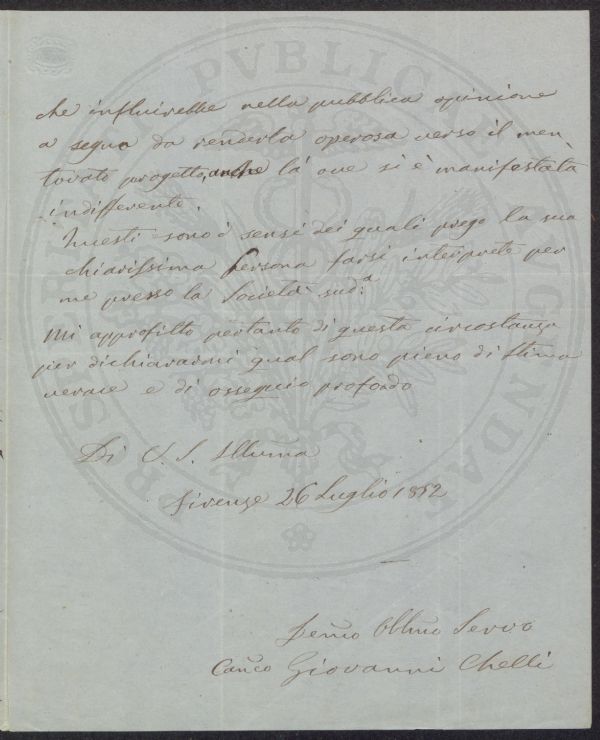 che influirebbe nella pubblica opinione
a segno da renderla operosa verso il men-
tovato progetto, anche là ove si è manifestata
indifferente.
Questi sono i sensi dei quali prego la sua
chiarissima Persona farsi interprete per
me presso la Società sud.a
Mi approfitto pertanto di questa circostanza
per dichiararmi qual sono pieno di stima
verace e di ossequio profondo
Di V. S. Illuma
Firenze 26 Luglio 1852
Devmo Obbmo Servo
Canco Giovanni Chelli
PUBLICAE